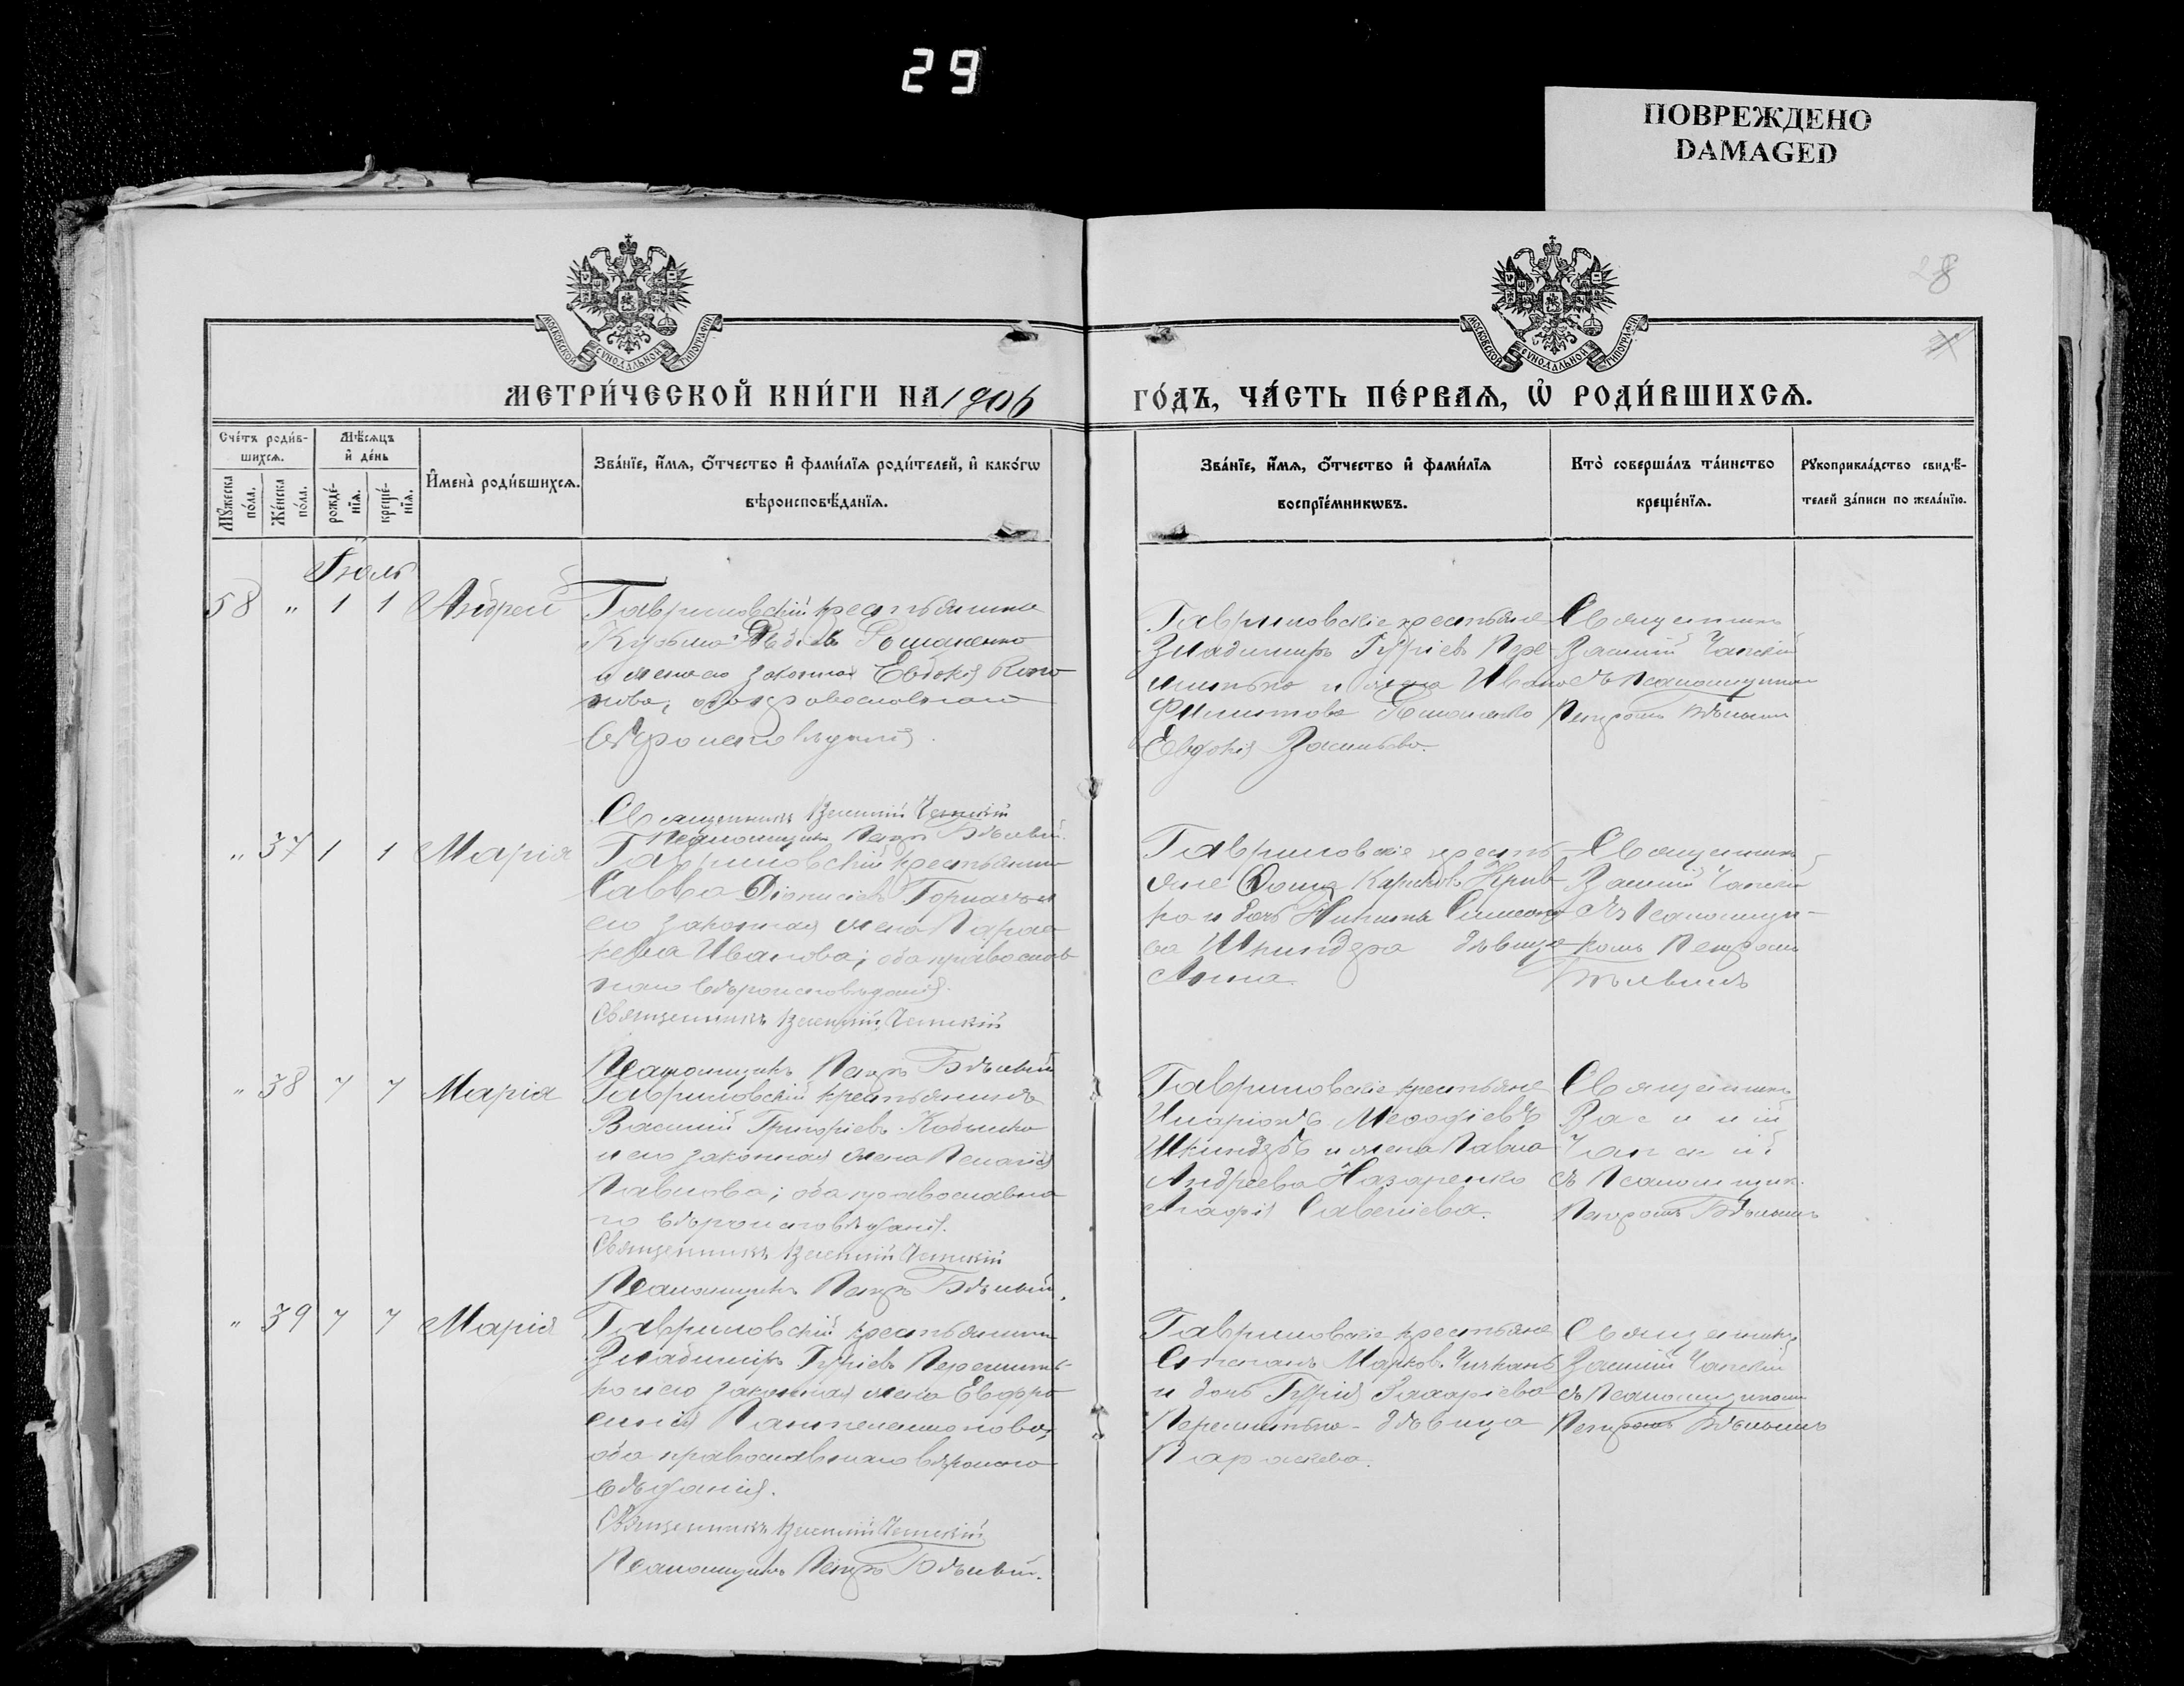 29
ПОВРЕЖДЕНО
DAMAGED
28
МОСКОВСКОЙ СУНОДАЛЬНОЙ ТИПОГРАФІИ
МОСКОВСКОЙ СУНОДАЛЬНОЙ ТИПОГРАФІИ
МЕТРИ́ЧЕСКОЙ КНИ́ГИ НА 1906
ГО́ДЪ, ЧА́СТЬ ПЕ́РВАѦ, Ѡ҆ РОДИ́ВШИХСѦ.
Сче́тъ роди́в-
шихсѧ.
Мѣ́сѧцъ
и҆ де́нь
Мꙋ́жеска по́ла.
Же́нска по́ла.
рожде́-нїѧ.
креще́-нїѧ.
И҆мена̀ роди́вшихсѧ.
Зва́нїе, и҆́мѧ, ѻ҆́тчество и҆ фами́лїѧ роди́телей, и҆ како́гѡ
вѣроисповѣ́данїѧ.
Зва́нїе, и҆́мѧ, ѻ҆́тчество и҆ фами́лїѧ
воспрїе́мникѡвъ.
Кто̀ соверша́лъ та́инство
креще́нїѧ.
Рꙋкоприкла́дство свидѣ́-
телей за́писи по жела́нїю.
Іюль
58 " 1 1 Андрей
Гавриловскій крестьянинъ
Кузьма
и жена его законная Евдокія Коно
нова, оба православнаго
вѣроисповѣданія.
Священникъ Василій Чапскій
Псаломщикъ Петръ Бѣлый.
Гавриловскіе крестьяне
Владимиръ Гуріевъ Пере
митько и жена Ивана
Филиппова
Евдокія Васильева.
Священникъ
Василій Чапскій
съ псаломщикомъ
Петромъ Бѣлымъ
" 37 1 1 Марія
Гавриловскій крестьянинъ
Савва Діонисіевъ
его законная жена Парас
кева Иванова; оба православ
наго вѣроисповѣданія.
Священникъ Василій Чапскій
Псаломщикъ Петръ Бѣлый
Гавриловскіе кресть
яне Фома Карповъ
ко и дочь Никиты Симеоно
ва Шкиндера дѣвица
Анна.
Священникъ
Василій Чапскій
съ псаломщи-
комъ Петромъ
Бѣлымъ
" 38 7 7 Марія
Гавриловскій крестьянинъ
Василій Григоріевъ
и его законная жена Пелагія
Павлова; оба православна
го вѣроисповѣданія.
Священникъ Василій Чапскій
Псаломщикъ Петръ Бѣлый.
Гавриловскіе крестьяне
Иларіонъ Меѳодіевъ
Шкиндеръ и жена Павла
Андреева Назаренко
Агафія Савеліева.
Священникъ
Василій
Чапскій
съ псаломщик.
Петромъ Бѣлымъ
" 39 7 7 Марія
Гавриловскій крестьянинъ
Владимиръ Гуріевъ Перемить-
ко и его законная жена Евфро
синія Пантелеимонова,
оба православнаго вѣроиспо
вѣданія.
Священникъ Василій Чапскій
Псаломщикъ Петръ Бѣлый.
Гавриловскіе крестьяне
Степанъ Марков. Чичкань
и дочь Гурія Захаріева
Перемитько - дѣвица
Параскева.
Священникъ
Василій Чапскій
съ псаломщикомъ
Петромъ Бѣлымъ